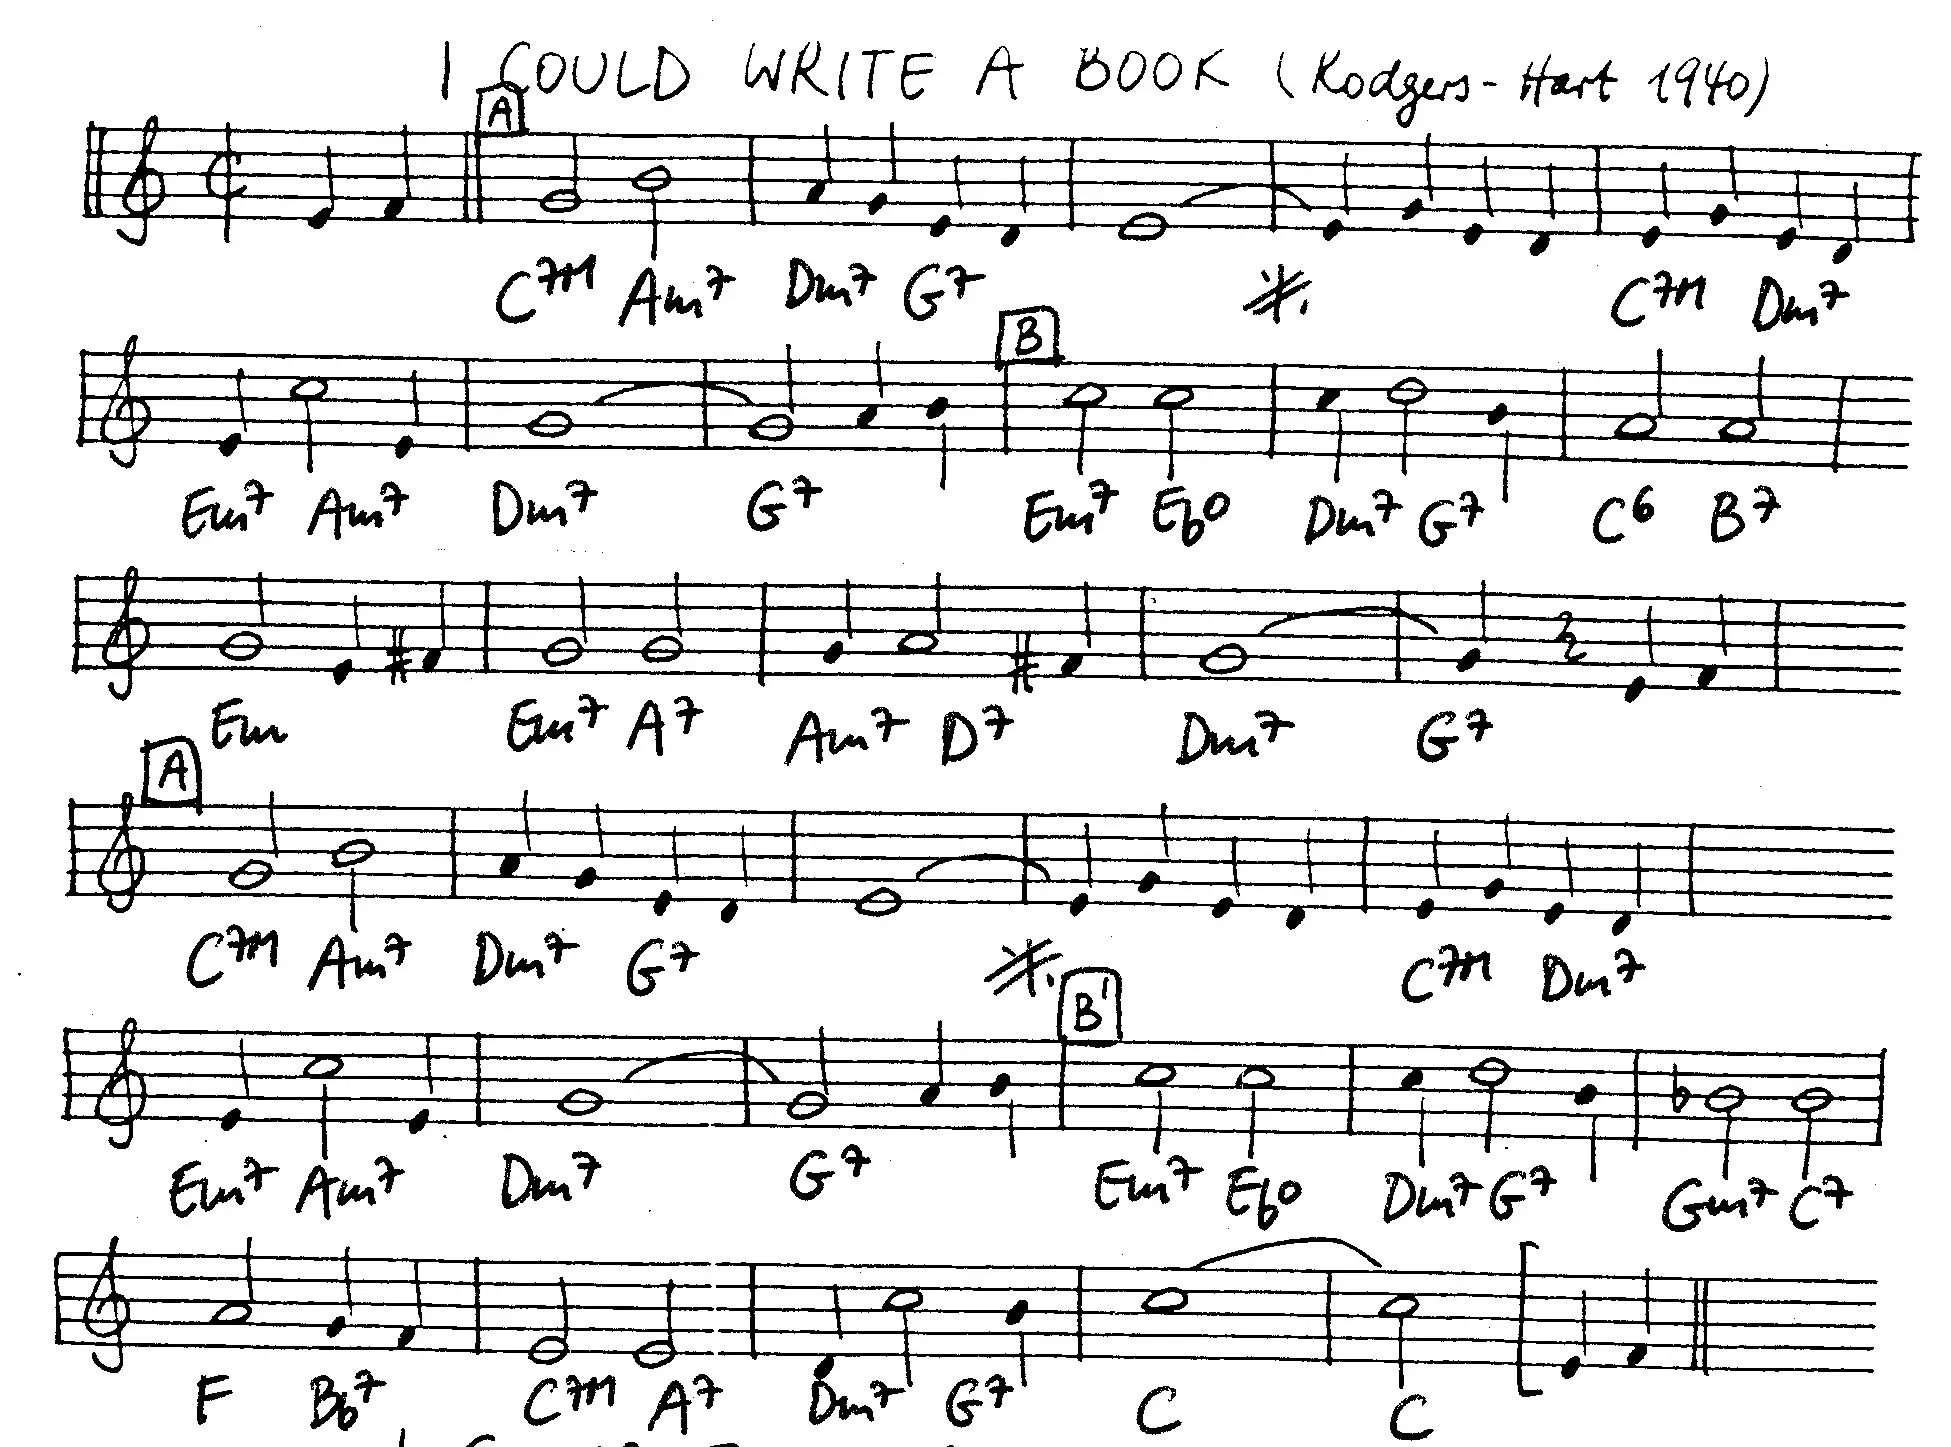 I COULD WRITE A BOOK (Rodgers-Hart 1940)
A
C7M Am7 Dm7 G7 C7M Dm7
B
Em7 Am7 Dm7 G7 Em7 Ebo Dm7 G7 C6 B7
Em Em7 A7 Am7 D7 Dm7 G7
A
C7M Am7 Dm7 G7 C7M Dm7
B'
Em7 Am7 Dm7 G7 Em7 Ebo Dm7 G7 Gm7 C7
F Bb7 C7M A7 Dm7 G7 C C